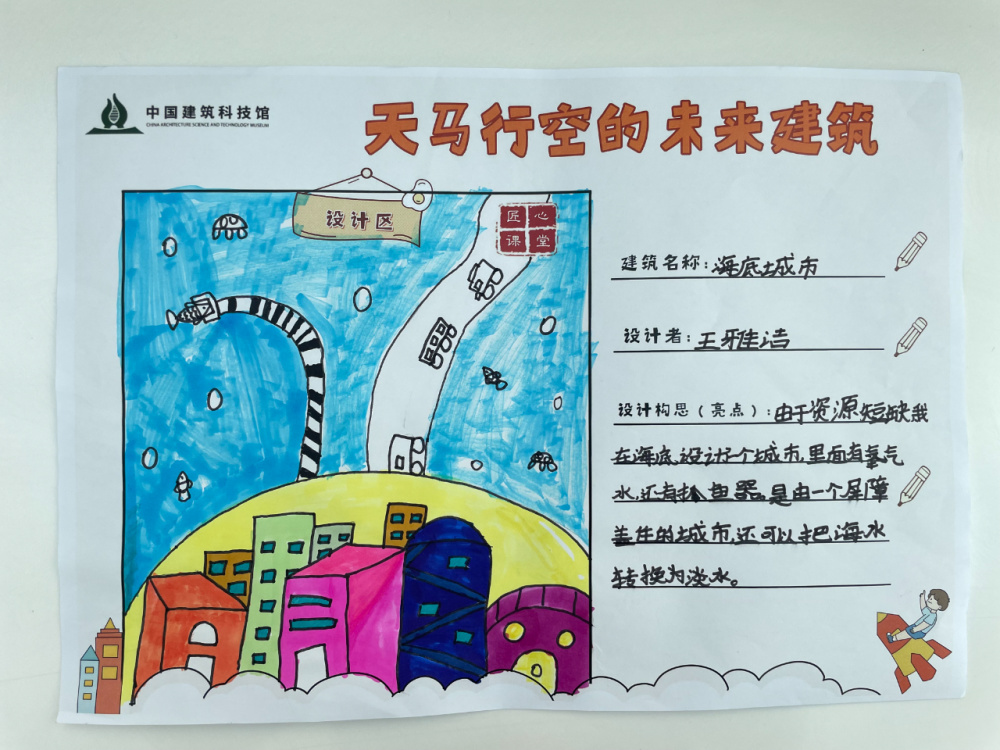 中国建筑科技馆
CHINA ARCHITECTURE SCIENCE AND TECHNOLOGY MUSEUM
天马行空的未来建筑
设计区
匠心
课堂
建筑名称：海底城市
设计者：王雅洁
设计构思（亮点）：由于资源短缺我
在海底设计了个城市，里面有氢气
水，还有扑鱼器。是由一个屏障
盖住的城市，还可以把海水
转换为淡水。